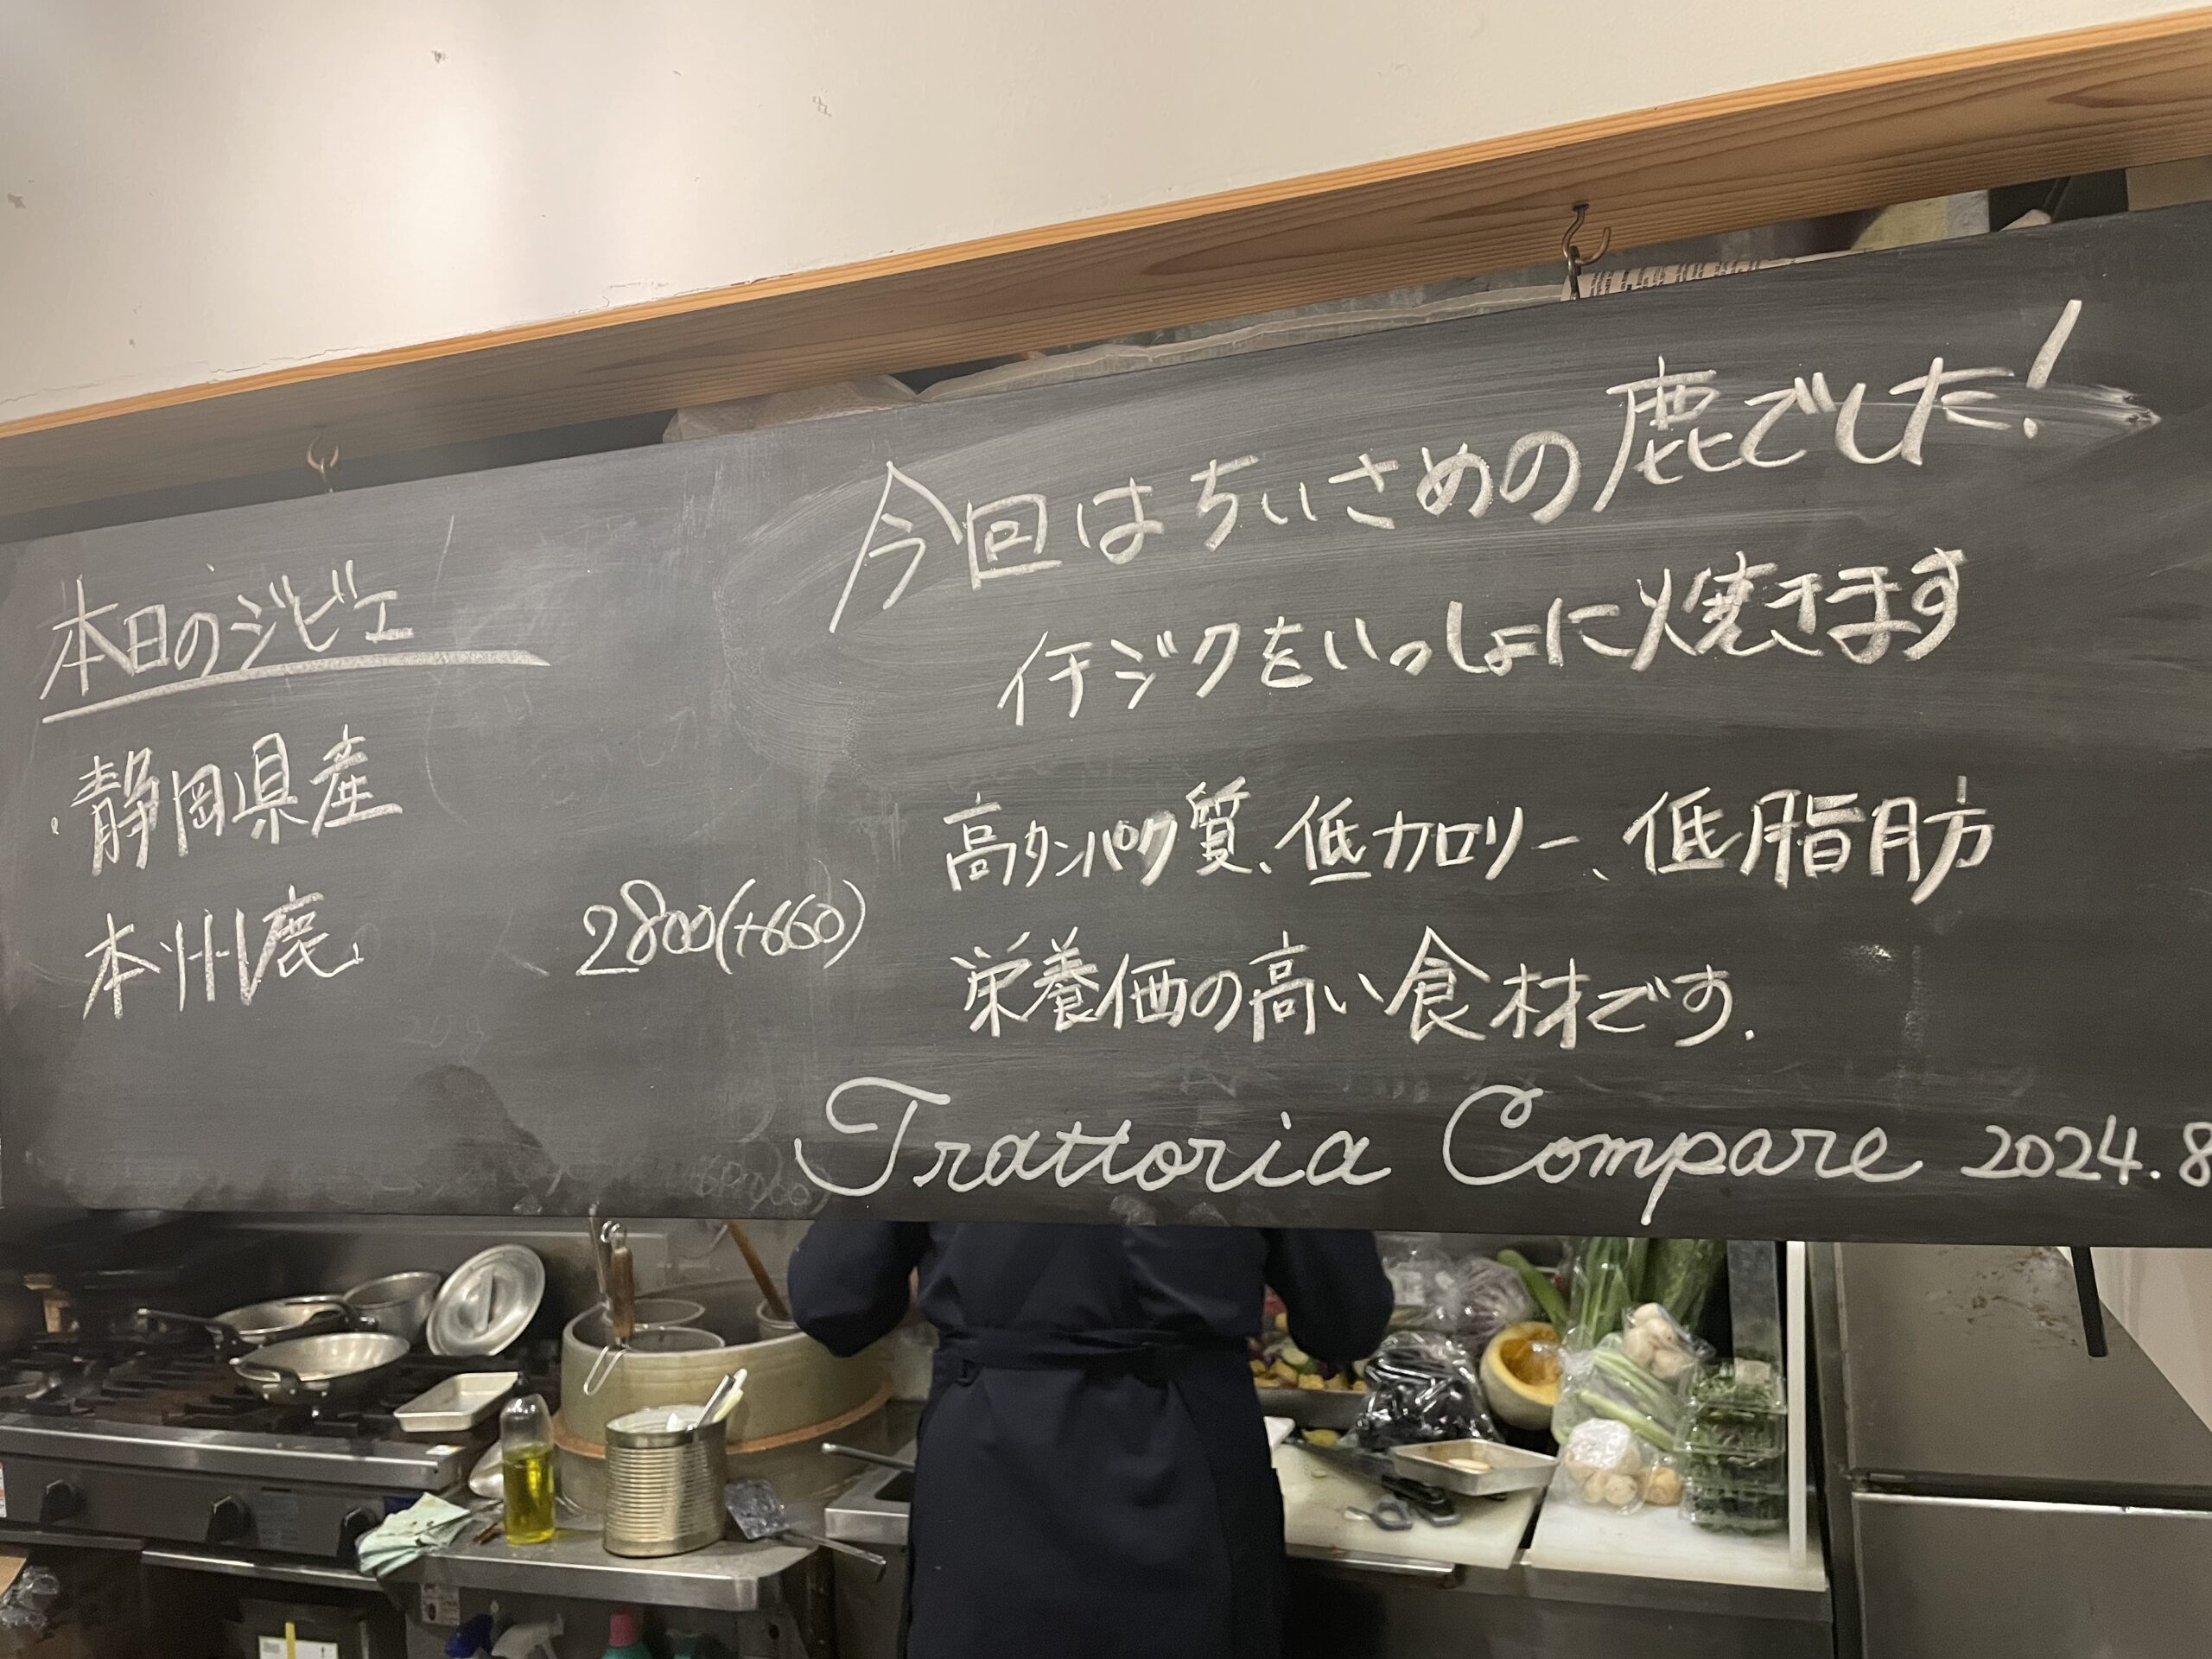 本日のジビエ
静岡県産
本州鹿 2800(+660)
今回はちいさめの鹿でした!
イチジクをいっしょに焼きます
高タンパク質、低カロリー、低脂肪
栄養価の高い食材です.
Trattoria Compare 2024.8